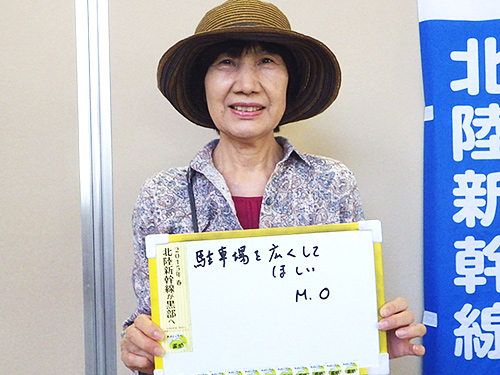 駐車場を広くして
ほしい
M.O
2015年春
北陸新幹線が黒部へ
北陸新幹線